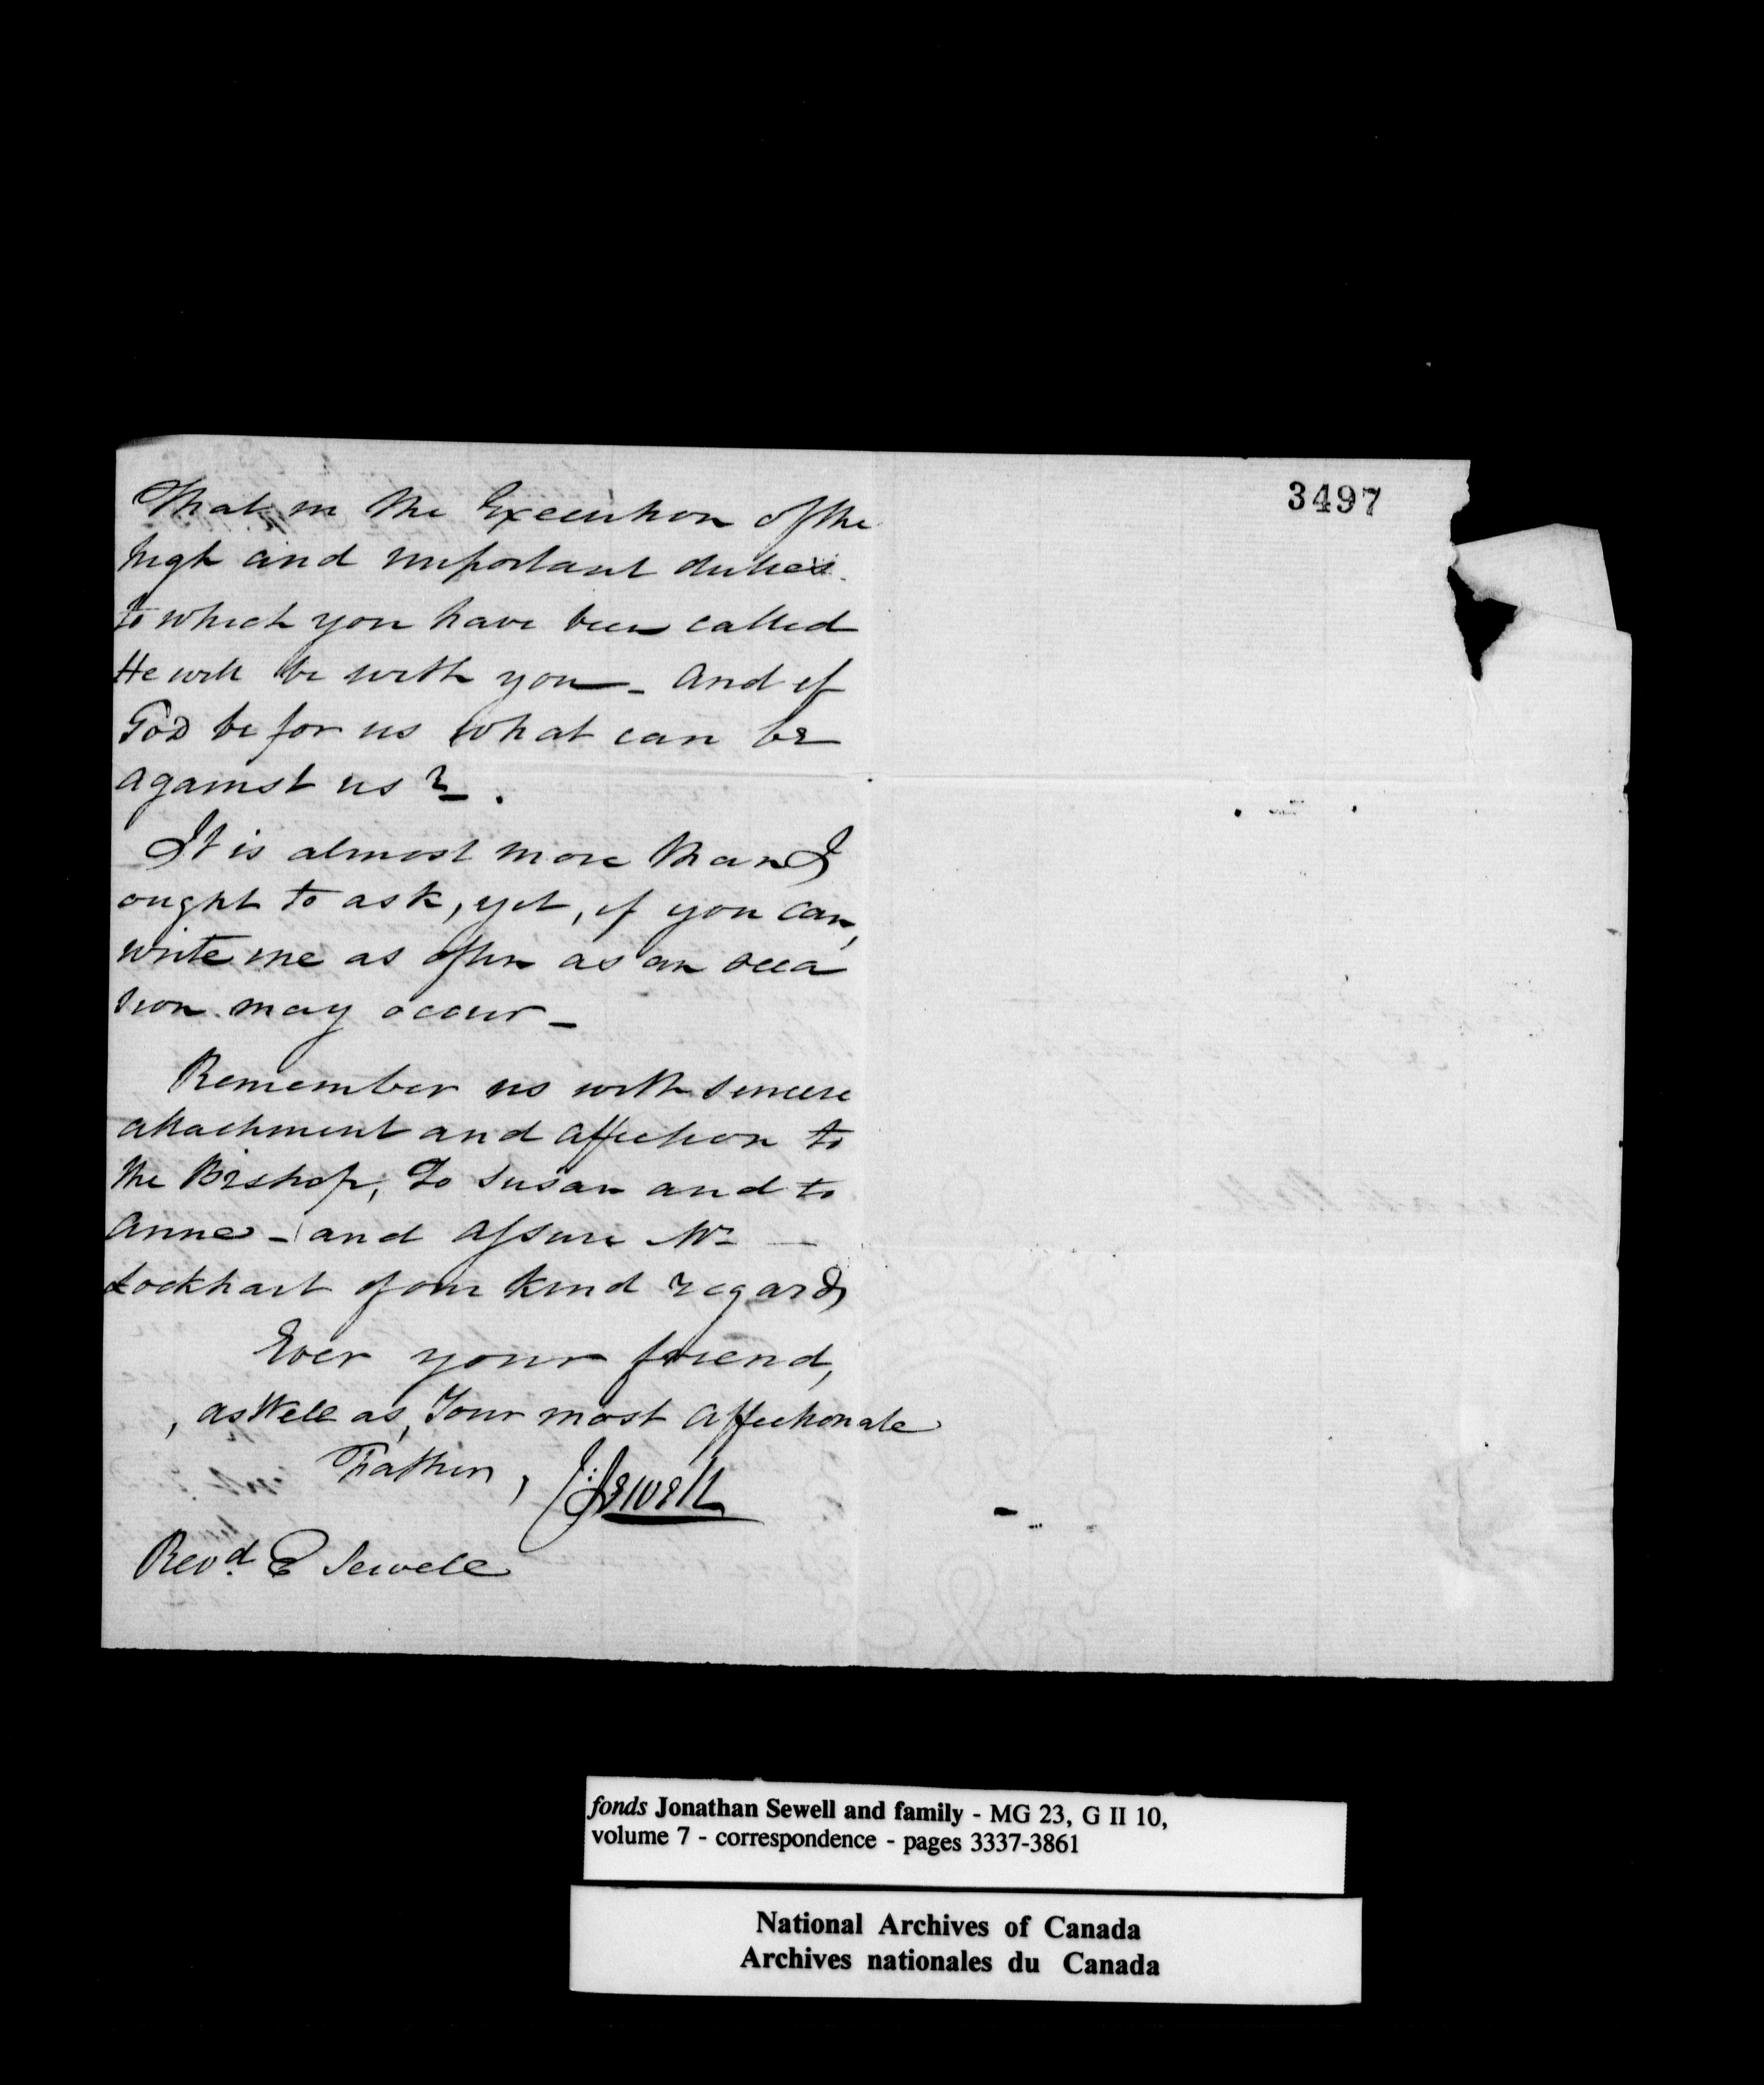 That in the Execution of the
high and important duties
to which you have been called
He will be with you - and if
God be for us what can be
against us? -.
It is almost more than I
ought to ask, yet, if you can,
write me as often as an occa
sion may occur -
Remember us with sincere
attachment and affection to
the Bishop, To Susan and to
Anne - and assure Mr
Lockhart of our kind regards
Ever your friend,
, as Well as, Your most affectionate
Father, J: Sewell
Revd. E Sewell
3497
fonds Jonathan Sewell and family - MG 23, G II 10,
volume 7 - correspondence - pages 3337-3861
National Archives of Canada
Archives nationales du Canada